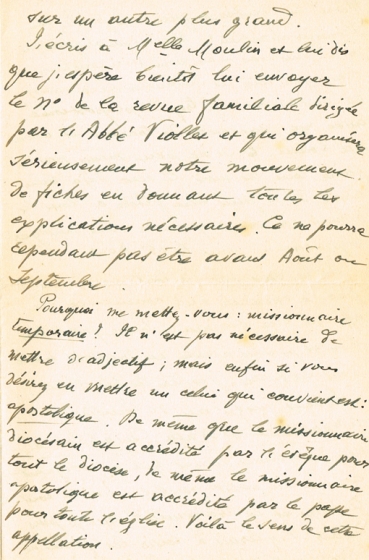 sur un autre plus grand.
J'écris à Melle Moulin et lui dis
que j'espère bientôt lui envoyer
le No de la revue familiale dirigée
par l'Abbé Viollet et qui organisera
sérieusement notre mouvement
de fiches en donnant toutes les
explications nécessaires. Ce ne pourra
cependant pas être avant Août ou
Septembre.
Pourquoi me mettez-vous : missionnaire
temporaire ? Il n'est pas nécessaire de
mettre d'adjectif ; mais enfin si vous
désirez en mettre un celui qui convient est :
apostolique. De même que le missionnaire
diocésain est accrédité par l'évêque pour
tout le diocèse, de même le missionnaire
apostolique est accrédité par le pape
pour toute l'église. Voilà le sens de cette
appellation.